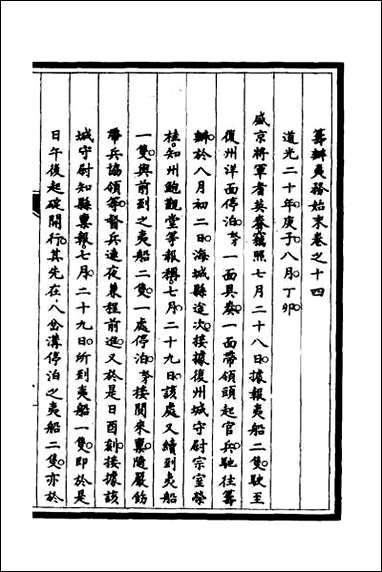 籌辦夷務始末卷之十四
道光二十年庚子八月丁卯
盛京將軍耆英奏竊照七月二十八日據報夷船二隻駛至
復州洋面停泊奴才一面具奏一面帶領頭起官兵馳往籌
辦於八月初二日海城縣途次接據復州城守尉宗室榮
桂知州鮑觀堂等報稱七月二十九日該處又續到夷船
一隻與前到之夷船二隻一處停泊奴才接閱來稟隨嚴飭
帶兵協領等督兵連夜兼程前進又於是日酉刻接據該
城守尉知縣稟報七月二十九日所到夷船一隻即於是
日午後起碇開行其先在八岔溝停泊之夷船二隻亦於